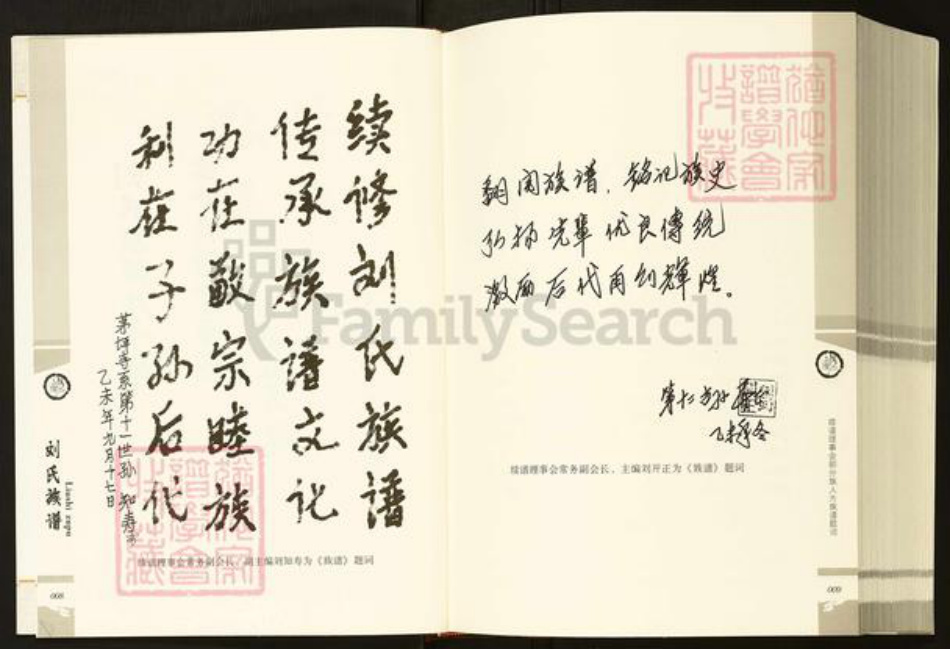 续修刘氏族谱
传承族谱文化
功在敬宗睦族
利在子孙后代
第十一世孙 知寿
乙未年九月十七日
续谱理事会常务副会长、副主编刘知寿为《族谱》题词
刘氏族谱
Liushi zupu
008
翻阅族谱，铭记族史
弘扬先辈优良傳统
激励后代再创輝煌。
乙未年冬
续谱理事会常务副会长、主编刘开正为《族谱》题词
续谱理事会部分族人为族谱题词
009
猶他家
譜學會
收藏
猶他家
譜學會
收藏
FamilySearch